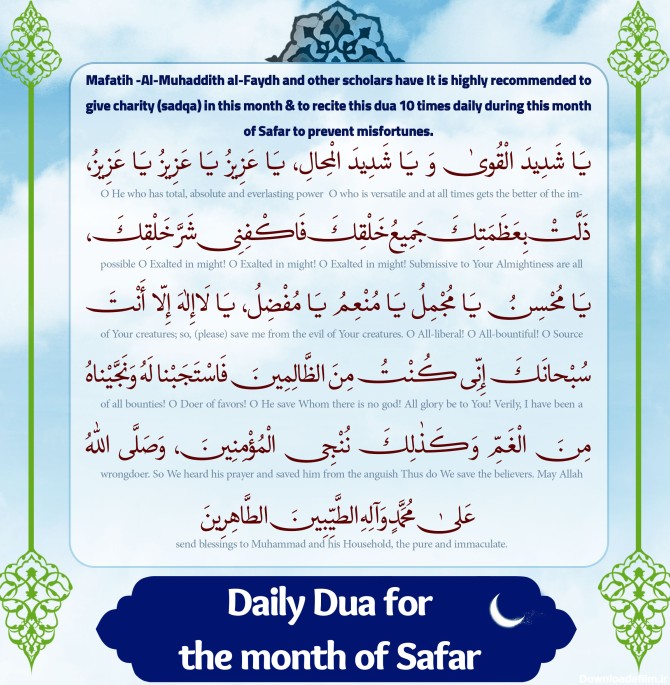 Mafatih -Al-Muhaddith al-Faydh and other scholars have It is highly recommended to
give charity (sadqa) in this month & to recite this dua 10 times daily during this month
of Safar to prevent misfortunes.
يَا شَدِيدَ الْقُوىٰ وَ يَا شَدِيدَ الْمِحالِ، يَا عَزِيزُ يَا عَزِيزُ يَا عَزِيزُ،
O He who has total, absolute and everlasting power O who is versatile and at all times gets the better of the im-
ذَلَّتْ بِعَظَمَتِكَ جَمِيعُ خَلْقِكَ فَاكْفِنِى شَرَّ خَلْقِكَ،
possible O Exalted in might! O Exalted in might! O Exalted in might! Submissive to Your Almightiness are all
يَا مُحْسِنُ يَا مُجْمِلُ يَا مُنْعِمُ يَا مُفْضِلُ، يَا لَاإِلٰهَ إِلّا أَنْتَ
of Your creatures; so, (please) save me from the evil of Your creatures. O All-liberal! O All-bountiful! O Source
سُبْحانَكَ إِنِّى كُنْتُ مِنَ الظَّالِمِينَ فَاسْتَجَبْنا لَهُ وَنَجَّيْناهُ
of all bounties! O Doer of favors! O He save Whom there is no god! All glory be to You! Verily, I have been a
مِنَ الْغَمِّ وَكَذٰلِكَ نُنْجِى الْمُؤْمِنِينَ، وَصَلَّى اللّٰهُ
wrongdoer. So We heard his prayer and saved him from the anguish Thus do We save the believers. May Allah
عَلىٰ مُحَمَّدٍ وَآلِهِ الطَّيِّبِينَ الطَّاهِرِينَ
send blessings to Muhammad and his Household, the pure and immaculate.
Daily Dua for
the month of Safar